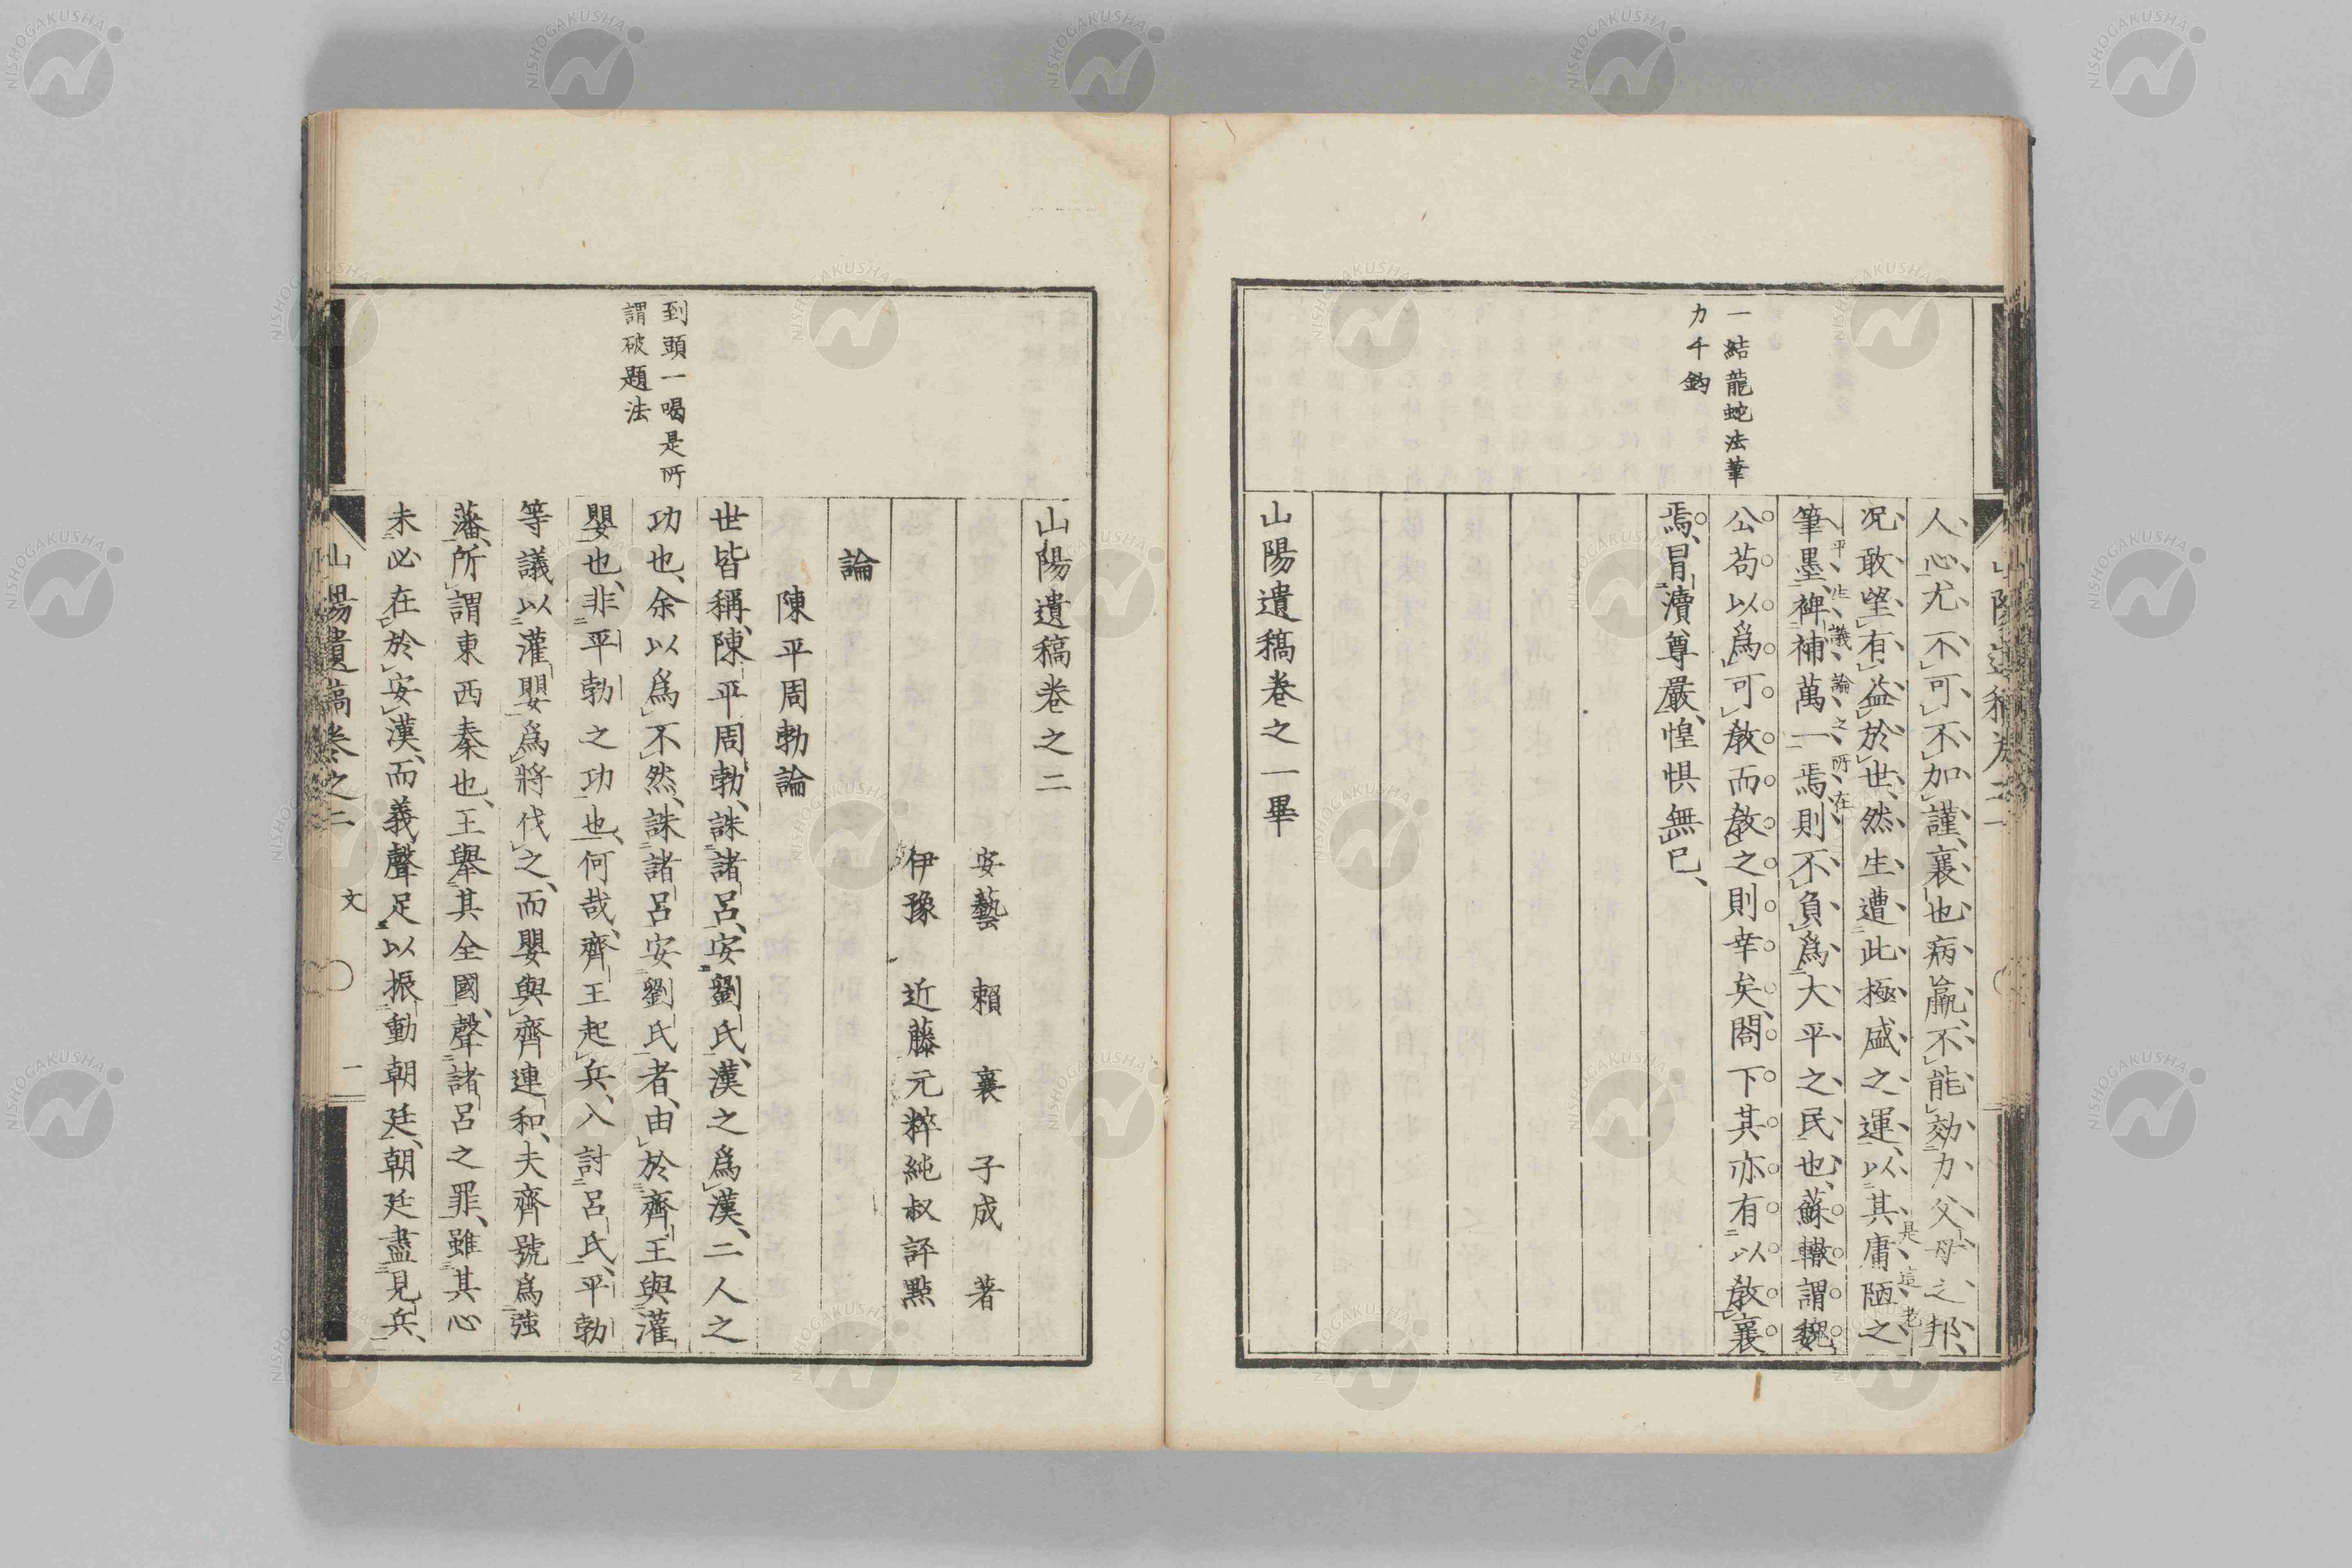 一結龍蛇法筆
力千鈞
人心、尤不可不加謹、襄也病羸、不能効力父母之邦、
况敢望有益於世、然生遭此極盛之運、以其庸陋之
是這老
筆墨、裨補萬一焉、則不負爲大平之民也、蘇轍謂魏
平生議論之所在
公苟以爲可敎而敎之則幸矣、閤下其亦有以敎襄
焉、冒瀆尊嚴、惶惧無已、
山陽遺稿卷之一畢
山陽遺稿卷之二
安藝 賴襄子成著
伊豫 近藤元粹純叔評點
論
陳平周勃論
到頭一喝是所
謂破題法
世皆稱、陳平周勃、誅諸呂、安劉氏、漢之爲漢、二人之
功也、余以爲不然、誅諸呂安劉氏者、由於齊王與灌
嬰也、非平勃之功也、何哉、齊王起兵、入討呂氏、平勃
等議以灌嬰爲將伐之、而嬰與齊連和、夫齊號爲強
藩、所謂東西秦也、王舉其全國、聲諸呂之罪、雖其心
未必在於安漢、而義聲足以振動朝廷、朝廷盡見兵、
山陽遺稿卷之二 文 一